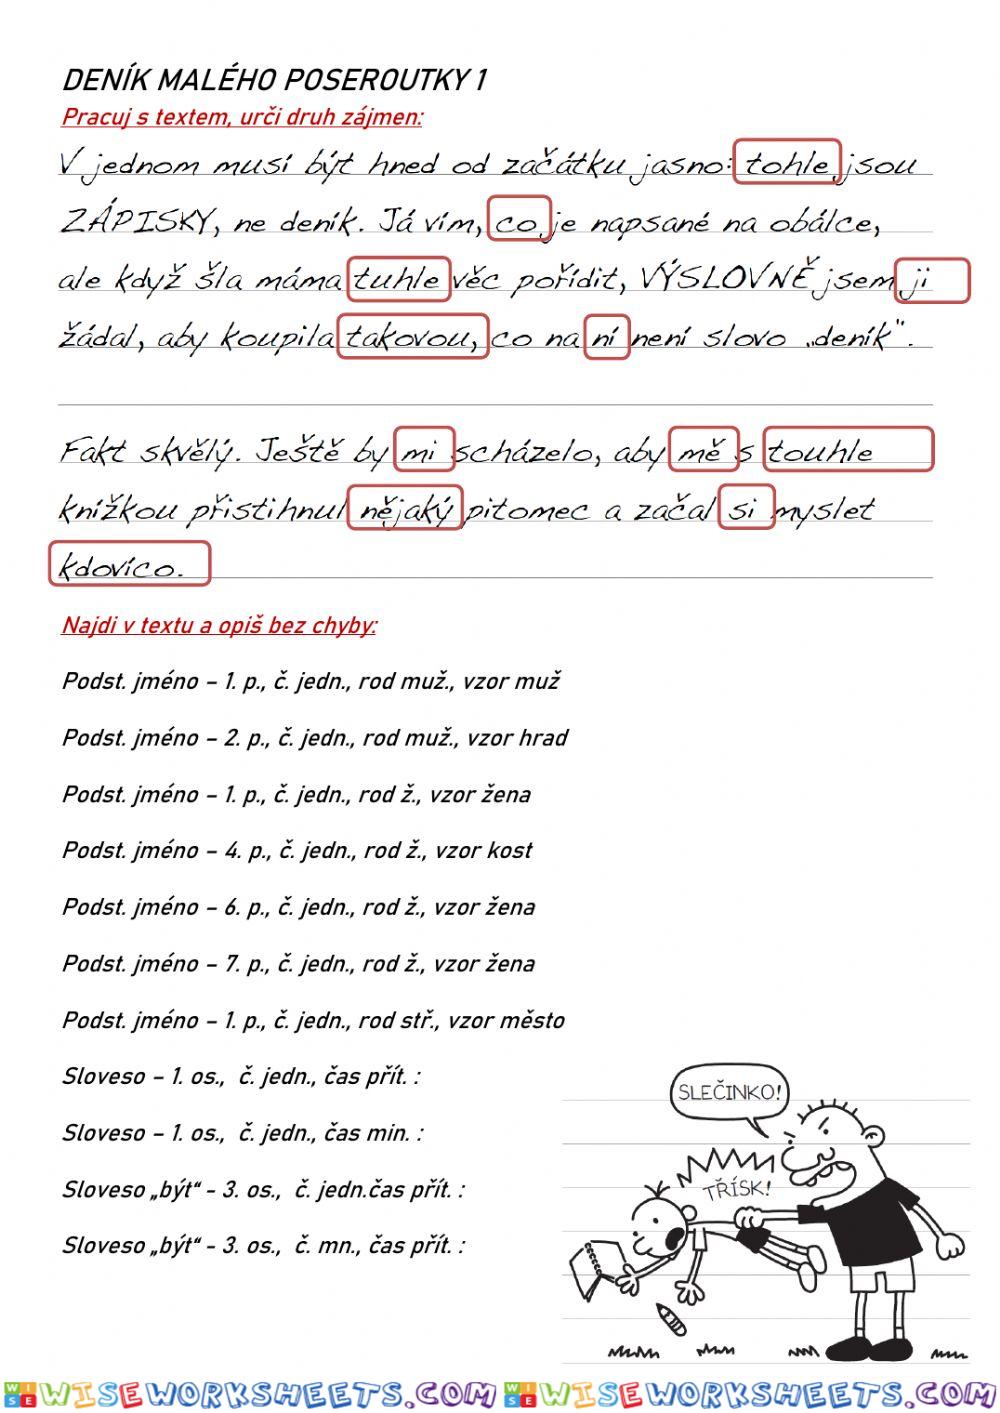 DENÍK MALÉHO POSEROUTKY 1
Pracuj s textem, urči druh zájmen:
V jednom musí být hned od začátku jasno: tohle jsou
ZÁPISKY, ne deník. Já vím, co je napsané na obálce,
ale když šla máma tuhle věc pořídit, VÝSLOVNĚ jsem ji
žádal, aby koupila takovou, co na ní není slovo „deník".
Fakt skvělý. Ještě by mi scházelo, aby mě s touhle
knížkou přistihnul nějaký pitomec a začal si myslet
kdovíco.
Najdi v textu a opiš bez chyby:
Podst. jméno – 1. p., č. jedn., rod muž., vzor muž
Podst. jméno – 2. p., č. jedn., rod muž., vzor hrad
Podst. jméno – 1. p., č. jedn., rod ž., vzor žena
Podst. jméno – 4. p., č. jedn., rod ž., vzor kost
Podst. jméno – 6. p., č. jedn., rod ž., vzor žena
Podst. jméno – 7. p., č. jedn., rod ž., vzor žena
Podst. jméno – 1. p., č. jedn., rod stř., vzor město
Sloveso – 1. os., č. jedn., čas přít. :
Sloveso – 1. os., č. jedn., čas min. :
Sloveso „být“ - 3. os., č. jedn.čas přít. :
Sloveso „být“ - 3. os., č. mn., čas přít. :
SLEČINKO!
TŘÍSK!
WISE WISEWORKSHEETS.COM WISE WISEWORKSHEETS.COM